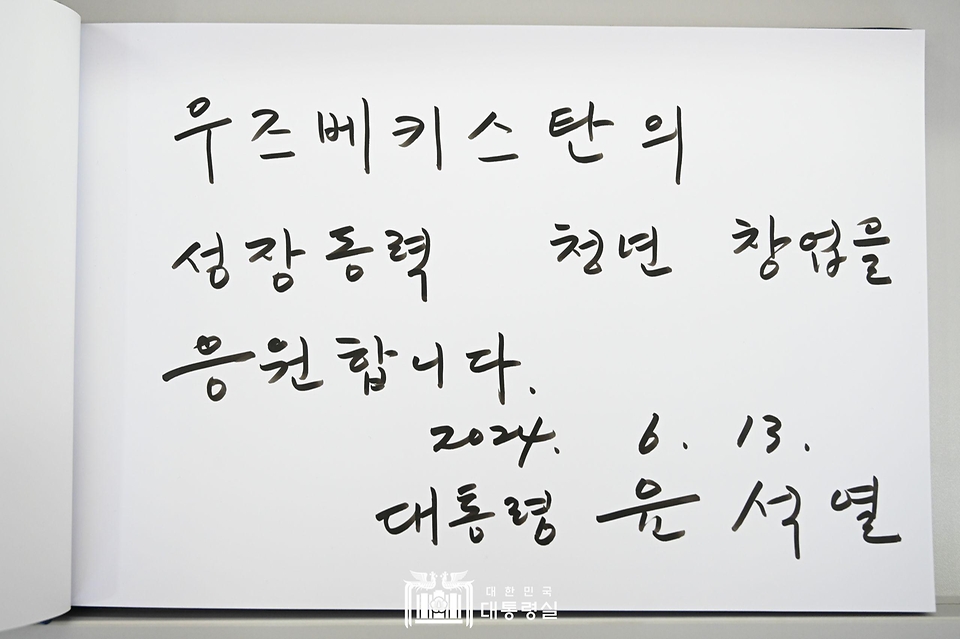 우즈베키스탄의
성장동력 청년 창업을
응원합니다.
2024. 6. 13.
대통령 윤석열
대한민국
대통령실